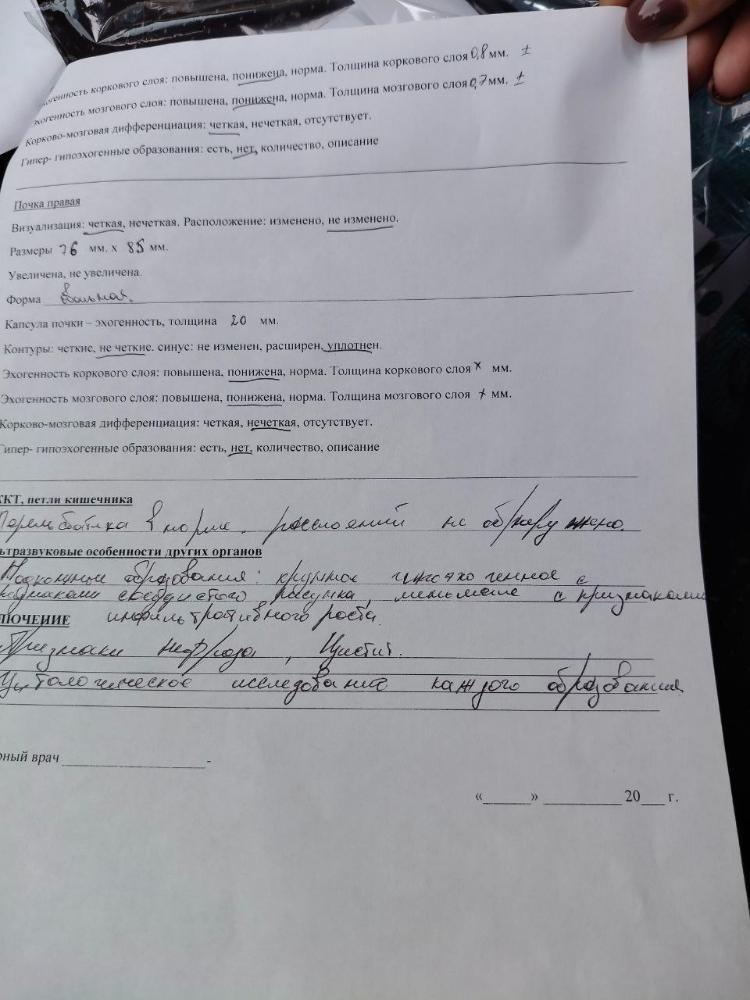 огенность коркового слоя: повышена, понижена, норма. Толщина коркового слоя 0,8 мм. ±
хогенность мозгового слоя: повышена, понижена, норма. Толщина мозгового слоя 0,7 мм. ±
Корково-мозговая дифференциация: четкая, нечеткая, отсутствует.
Гипер- гипоэхогенные образования: есть, нет, количество, описание
Почка правая
Визуализация: четкая, нечеткая. Расположение: изменено, не изменено.
Размеры 76 мм. х 85 мм.
Увеличена, не увеличена.
Форма
Капсула почки – эхогенность, толщина 20 мм.
Контуры: четкие, не четкие. синус: не изменен, расширен, уплотнен.
Эхогенность коркового слоя: повышена, понижена, норма. Толщина коркового слоя х мм.
Эхогенность мозгового слоя: повышена, понижена, норма. Толщина мозгового слоя мм.
Корково-мозговая дифференциация: четкая, нечеткая, отсутствует.
Гипер- гипоэхогенные образования: есть, нет, количество, описание
ЖКТ, петли кишечника
в норме. расслоений не обнаружено.
ьтразвуковые особенности других органов
Подкожные образования: крупное с
признаками сосудистого рисунка, меньшие с признаками
инфильтративного роста.
ЛЮЧЕНИЕ
Признаки нефроза, Цистит.
Цитологическое исследование каждого образования
рный врач ____________ -
«____» __________ 20___ г.